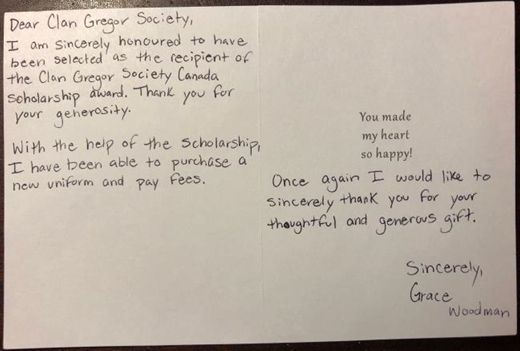 Dear Clan Gregor Society,
I am sincerely honoured to have
been selected as the recipient of
the Clan Gregor Society Canada
Scholarship award. Thank you for
your generosity.
With the help of the scholarship,
I have been able to purchase a
new uniform and pay fees.
You made
my heart
so happy!
Once again I would like to
sincerely thank you for your
thoughtful and generous gift.
Sincerely,
Grace
Woodman